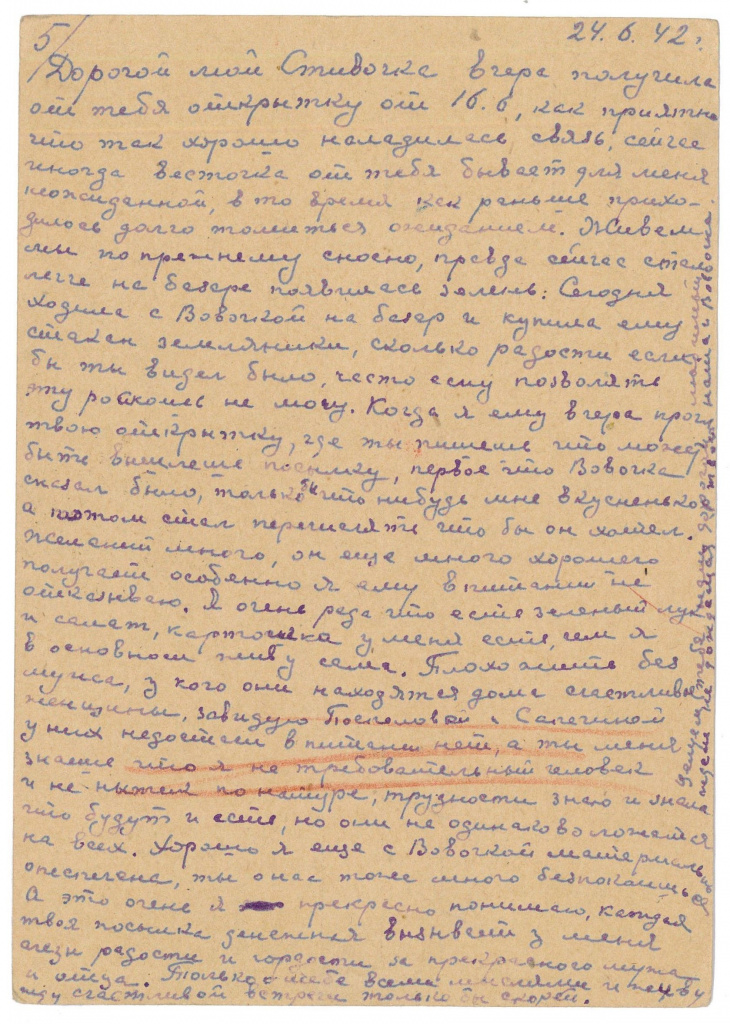 5/
24.6.42 г.
Дорогой мой Стивочка вчера получила
от тебя открытку от 16.6, как приятно
что так хорошо наладилась связь, сейчас
иногда весточка от тебя бывает для меня
неожиданной, в то время как раньше прихо-
дилось долго томиться ожиданием. Живем
мы по прежнему сносно, правда сейчас стало
легче на базаре появилась зелень: Сегодня
ходила с Вовочкой на базар и купила ему
стакан земляники, сколько радости если
бы ты видел было, часто ему позволять
эту роскошь не могу. Когда я ему вчера проч
твою открытку, где ты пишешь что может
быть вышлешь посылку, первое что Вовочка
сказал было, только бы что нибудь мне вкусненького
а потом стал перечислять что бы он хотел.
Желаний много, он еще много хорошего
получает особенно я ему в питании не
отказываю. Я очень рада что есть зеленый лук
и салат, картошка у меня есть, чем я
в основном живу сама. Плохо жить без
мужа, у кого они находятся дома счастливые
женщины, завидую Поспеловой и Сапегиной
у них недостачи в питании нет, а ты меня
знаешь что я не требовательный человек
и не нытик по натуре, трудности знаю и знала
что будут и есть, но они не одинаково ложатся
на всех. Хорошо я еще с Вовочкой материально
обеспечена, ты о нас тоже много безпокоишься
А это очень я прекрасно понимаю, каждая
твоя посылка денежная вызывает у меня
слезы радости и гордости за прекрасного мужа
и отца. Только о тебе всеми мыслями и живу
жду счастливой встречи только бы скорей.
Целуем тебя наш дорогой, любимый
ждем не дождемся твоя Ната и Вовочка.